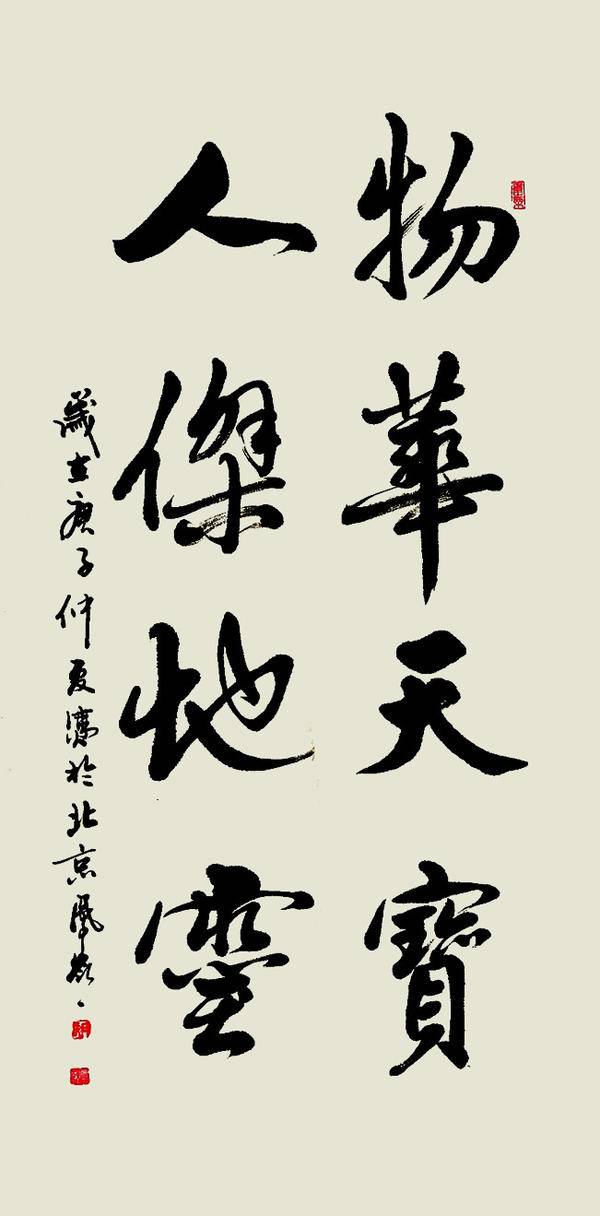 物華天寶
人傑地靈
歲在庚子仲夏書於北京